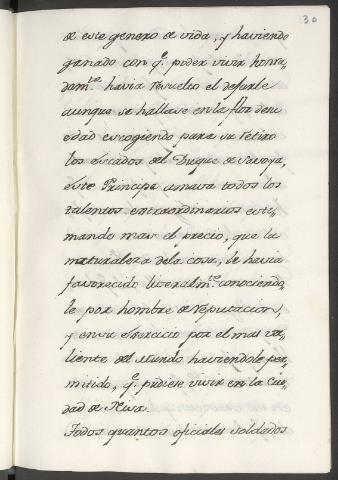 30
de este genero de vida, y haviendo
ganado con q.e poder vivir honrra-
dam.te havia resuelto el dejarle
aunque se hallase en la flor de su
edad escogiendo para su retiro
los estados del Duque de Savoya,
este Principe amava todos los
talentos extraordinarios esti-
mando mas el precio, que la
naturaleza de la cosa, le havia
favorecido literalm.te conociendo
le por hombre de reputacion,
y en su exercicio por el mas va-
liente del Mundo haviendole per-
mitido, q.e pudiese vivir en la Ciu-
dad de Niza.
Todos quantos oficiales soldados